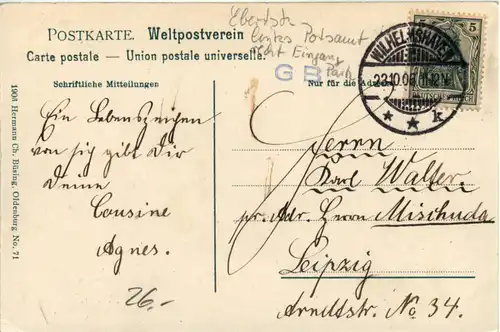 POSTKARTE. Weltpostverein
Carte postale — Union postale universelle.
Schriftliche Mitteilungen
Nur für die Adresse
Ebertstr.
Postamt
Eingang
Park
G B
WILHELMSHAVEN
23.10.06 11-12 V.
* * k
5 5
DEUTSCHES REICH
Ein Lebenszeichen
von sich gibt Dir
Deine
Cousine
Agnes.
26.-
Herrn
Karl Walter.
pr. Adr. Herrn Mischuda
Leipzig
Arndtstr. No 34.
1905 Hermann Ch. Büsing, Oldenburg, No. 71